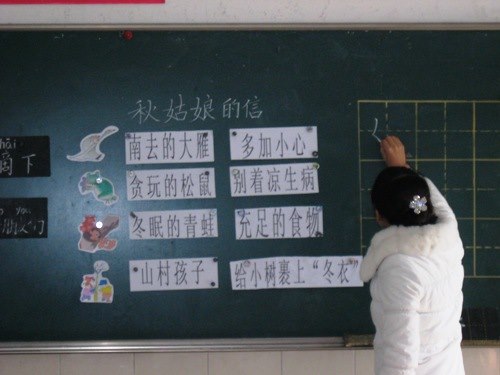 秋姑娘的信
南去的大雁 多加小心
贪玩的松鼠 别着凉生病
冬眠的青蛙 充足的食物
山村孩子 给小树裹上“冬衣”
下
们